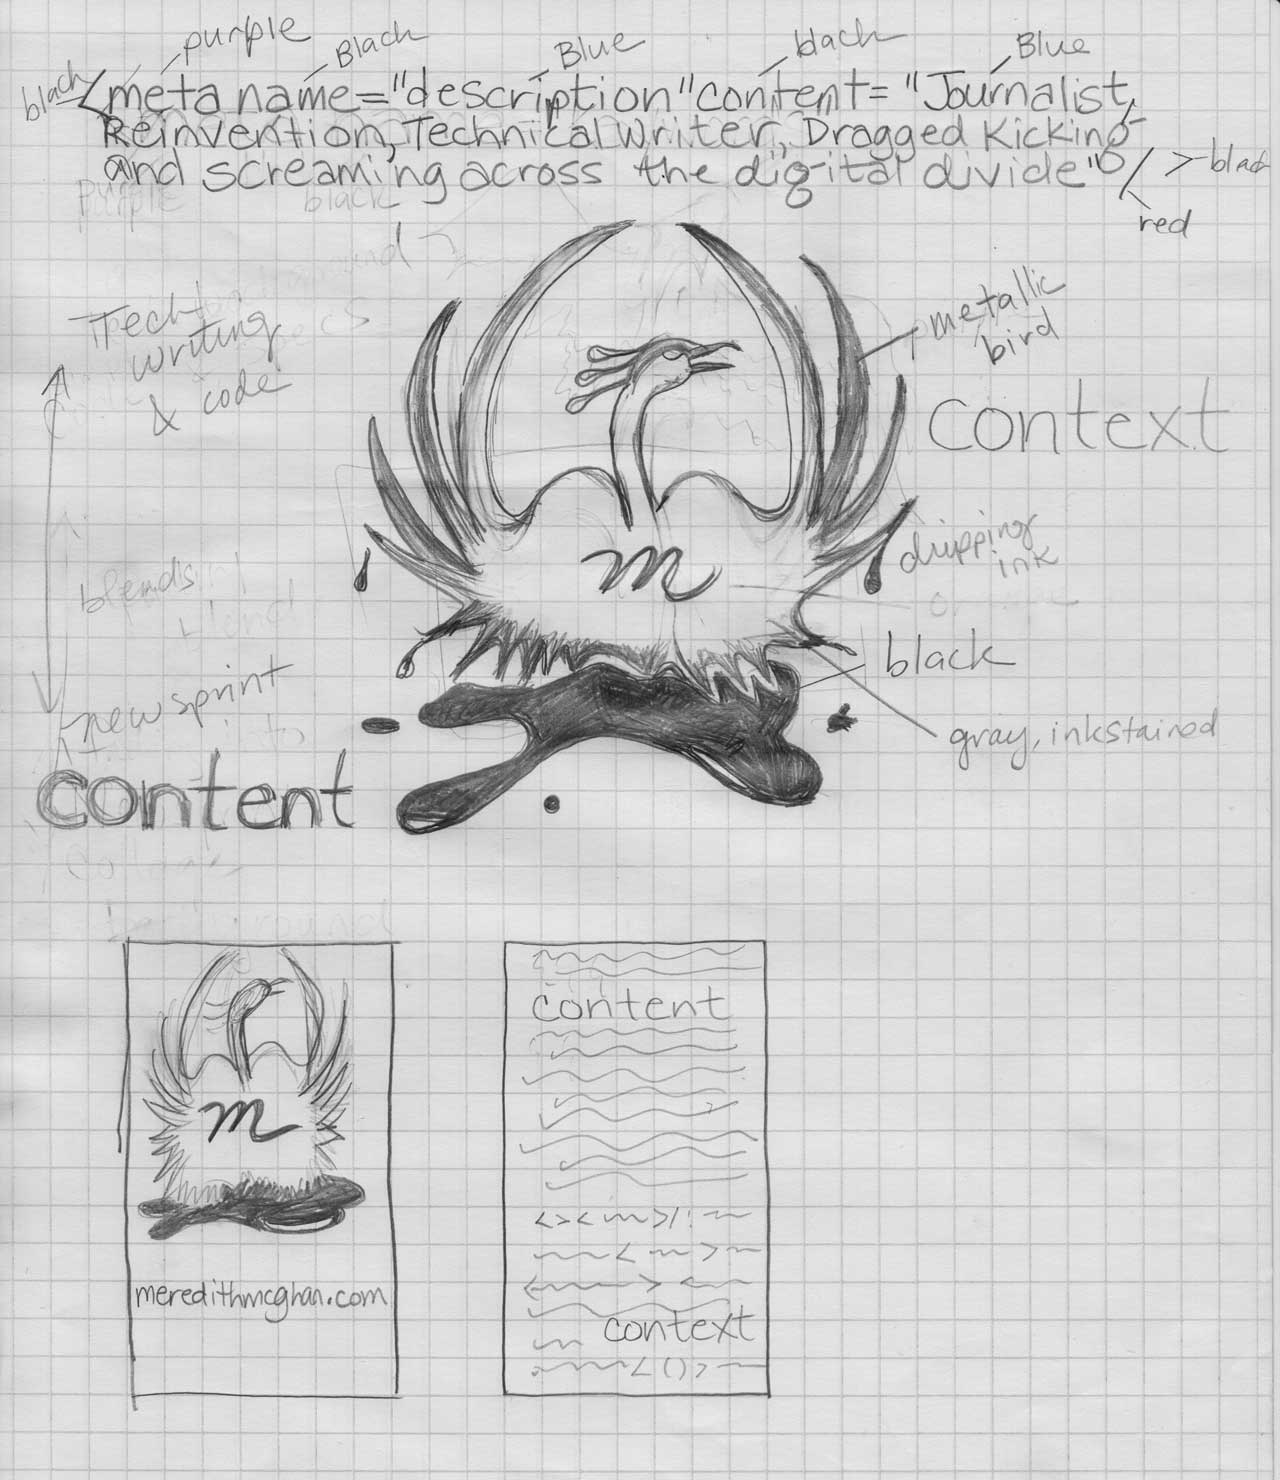 purple
Black
Blue
black
Blue
black
<meta name="description" content= "Journalist,
Reinvention, Technical Writer, Dragged Kicking
and screaming across the digital divide" />
black
purple
black
red
Tech
writing
& code
metallic
bird
context
dripping
ink
blends
blend
black
newsprint
gray, inkstained
content
m
content
m
<><
>/!
< >
< > <
meredithmcghan.com
context
< () <